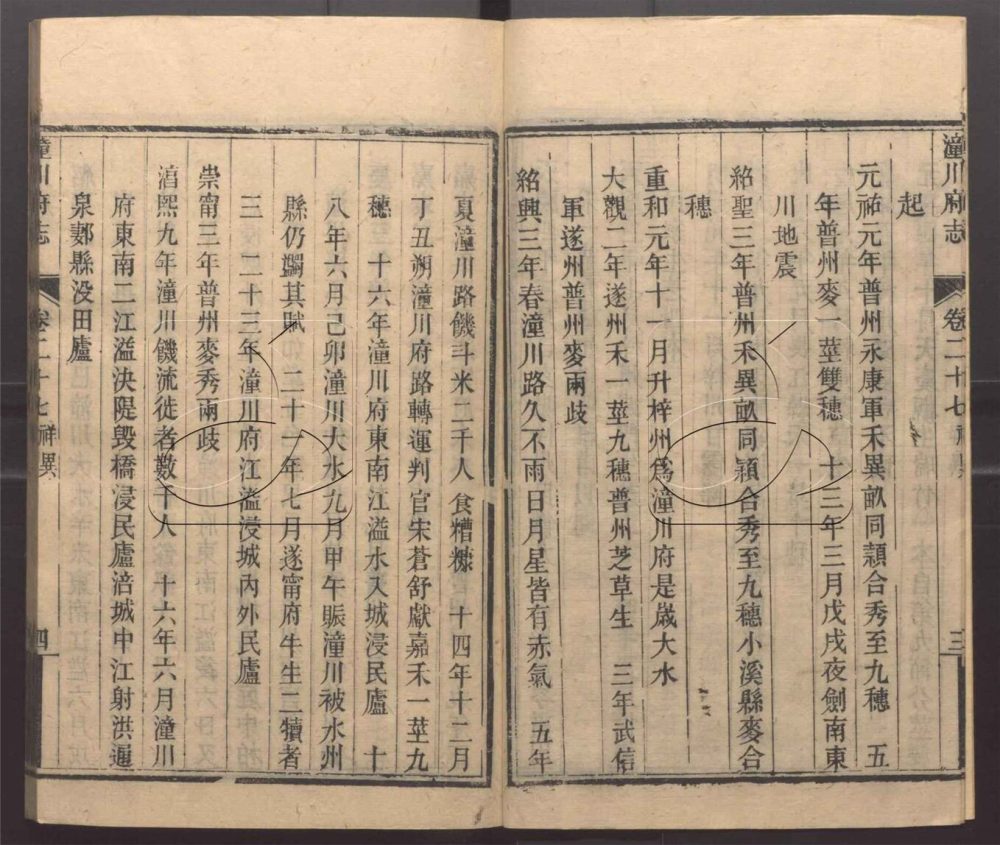 潼川府志
卷二十七 祥異
三
起
元祐元年普州永康軍禾異畝同穎合秀至九穗 五
年普州麥一莖雙穗 十三年三月戊戌夜劍南東
川地震
紹聖三年普州禾異畝同穎合秀至九穗小溪縣麥合
穗
重和元年十一月升梓州爲潼川府是歲大水
大觀二年遂州禾一莖九穗普州芝草生 三年武信
軍遂州普州麥兩歧
紹興三年春潼川路久不雨日月星皆有赤氣 五年
夏潼川路饑斗米二千人食糟糠 十四年十二月
丁丑朔潼川府路轉運判官宋蒼舒獻嘉禾一莖九
穗 十六年潼川府東南江溢水入城浸民廬 十
八年六月己卯潼川大水九月甲午賑潼川被水州
縣仍蠲其賦 二十一年七月遂甯府牛生二犢者
三 二十三年潼川府江溢浸城內外民廬
崇甯三年普州麥秀兩歧
淳熙九年潼川饑流徙者數千人 十六年六月潼川
府東南二江溢決隄毀橋浸民廬涪城中江射洪通
泉郪縣没田廬
潼川府志
卷二十七 祥異
四